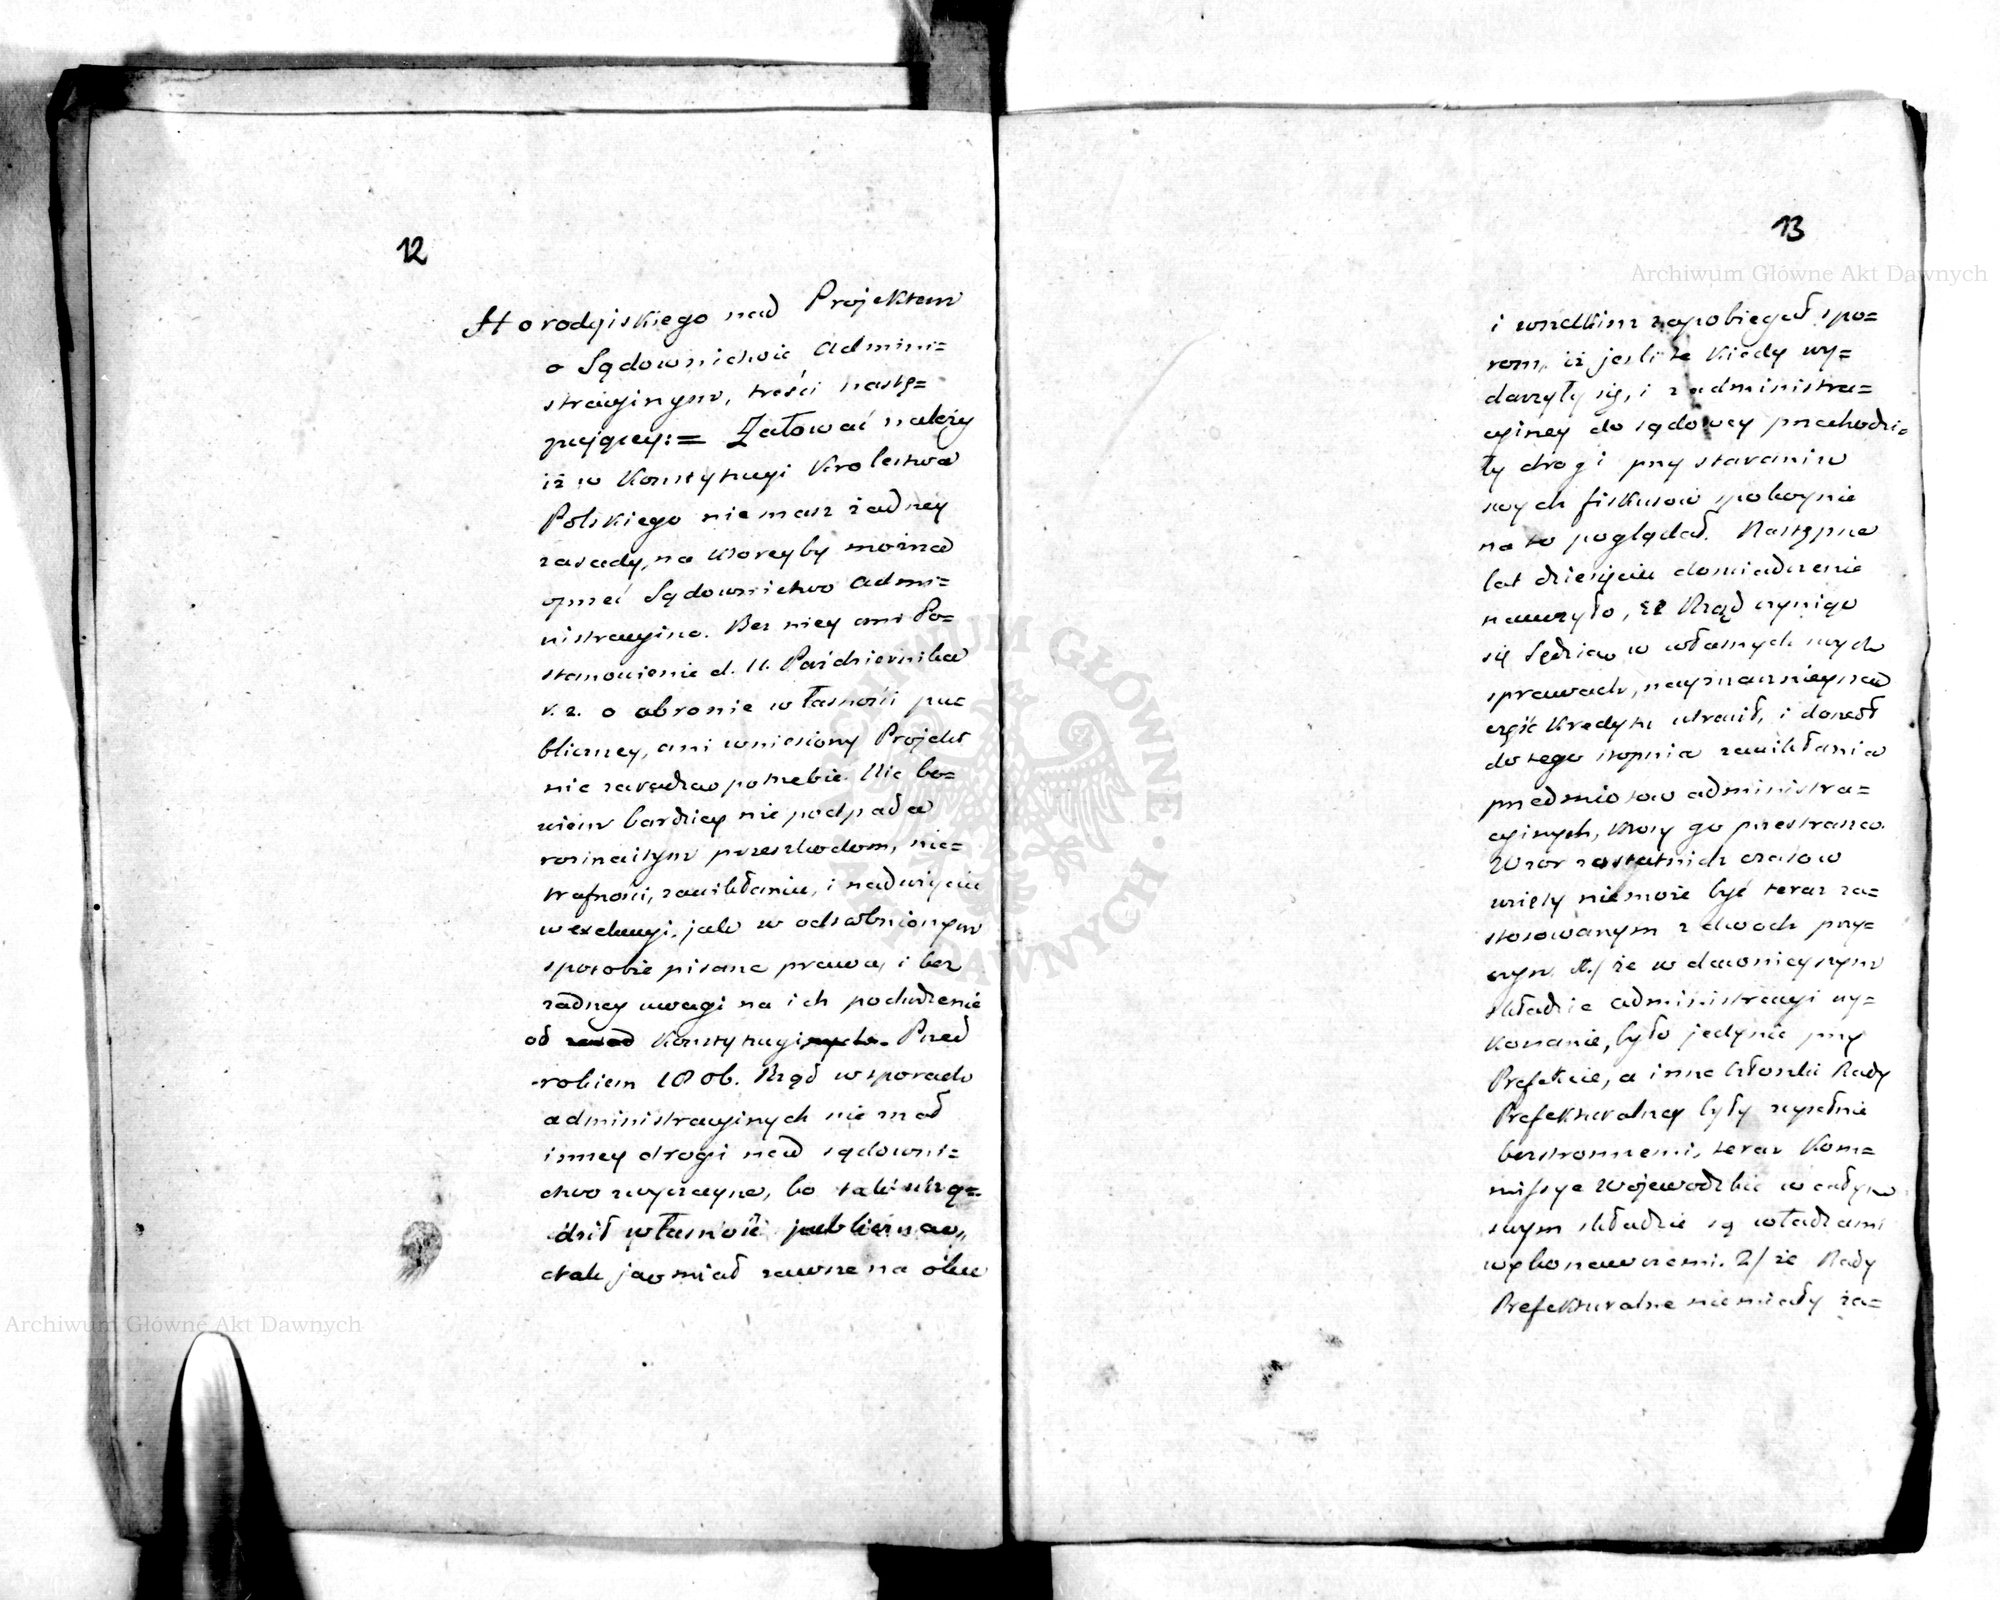 12
Horodyiskiego nad Projektem
o Sądownictwie Admini=
stracyinym, treści nastę=
puiącey:= Żałować należy
iż w Konstytucyi Krolestwa
Polskiego nie masz żadney
zasady, na ktoreyby można
oprzeć Sądownictwo Admi=
nistracyine. Bez niey ani Po=
stanowienie d. 11. Października
r. z. o obronie własności pu=
bliczney, ani wniesiony Projekt
nie zaradza potrzebie. Nic bo=
wiem bardziey nie podpada
rozmaitym przeszkodom, nie=
trafności, zawikłaniu, i nadwięciu
w exekucyi, jak w odosobnionym
sposobie pisane prawa, i bez
żadney uwagi na ich pochodzenie
od zasad Konstytucyinych. Przed
rokiem 1806. Rząd w sporach
administracyinych nie miał
inney drogi nad sądowni=
ctwo zwyczayne, bo tak urzą=
dził własność publiczną,
tak ją miał zawsze na oku
13
i wszelkim zapobiegał spo=
rom, iż jeśli te kiedy wy=
darzyły się, i z administra=
cyiney do sądowey przechodzi=
ły drogi przy staraniu
swych fiskusow spokoynie
na to poglądał. Następne
lat dziesięciu doświadczenie
nauczyło, że Rząd czyniąc
się Sędzią w własnych swych
sprawach, nayznacznieyszą
część kredytu utracił, i doszedł
do tego stopnia zawikłania
przedmiotow administra=
cyinych, ktory go przestrasza.
Wzor z ostatnich czasow
wzięty nie może być teraz za=
stosowanym z dwoch przy=
czyn. 1./ że w dawnieyszym
składzie administracyi wy=
konanie, było jedynie przy
Prefekcie, a inne Członki Rady
Prefekturalney były zupełnie
bezstronnemi, teraz Kom=
missye Wojewodzkie w całym
swym składzie są władzami
wykonawczemi. 2/ że Rady
Prefekturalne nie miały ża=
Archiwum Główne Akt Dawnych
Archiwum Główne Akt Dawnych
ARCHIWUM GŁÓWNE · AKT DAWNYCH ·